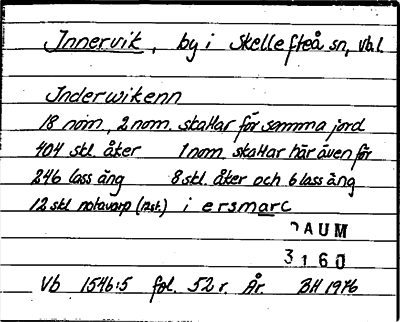 Innervik, by i Skellefteå sn, Vb.l
Inderwikenn
18 nom, 2 nom. skattar för samma jord
404 skl. åker 1 nom skattar här även för
246 lass äng 8 skl. åker och 6 lass äng
12 skl notavarp i ersmarc
DAUM
3160
Vb 1546:5 fol. 52 r. År. BH 1976